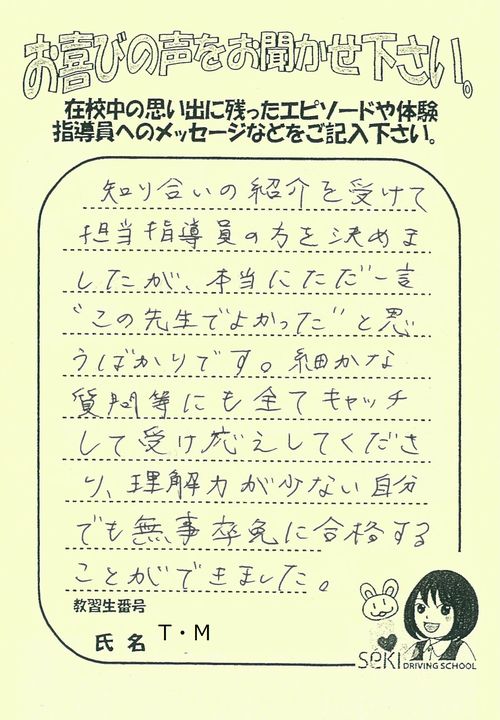 お喜びの声をお聞かせ下さい。
在校中の思い出に残ったエピソードや体験
指導員へのメッセージなどをご記入下さい。
知り合いの紹介を受けて
担当指導員の方を決めま
したが、本当にただ一言
"この先生でよかった"と思
うばかりです。細かな
質問等にも全てキャッチ
して受け応えしてくださ
り、理解力が少ない自分
でも無事卒免に合格する
ことができました。
教習生番号
氏名 T・M
SEKI DRIVING SCHOOL